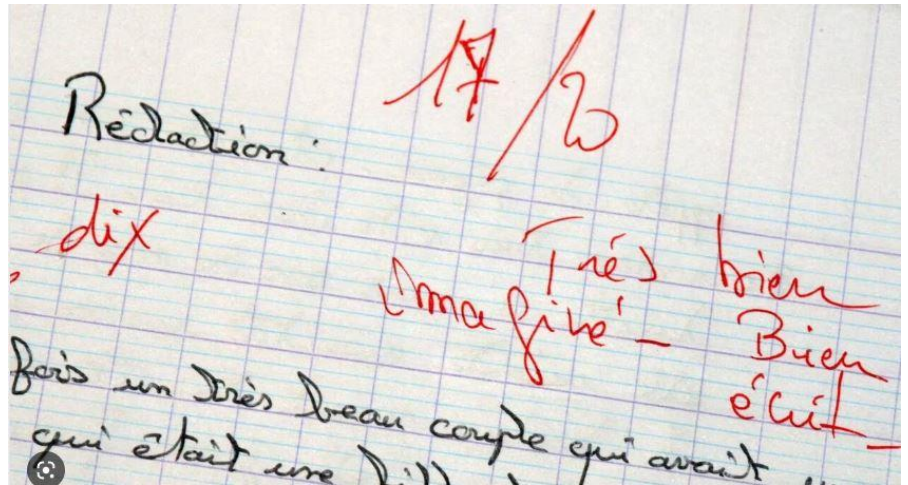 17/20
Rédaction :
dix
Très bien
imaginé - Bien
écrit -
fois un très beau couple qui avait
qui était une